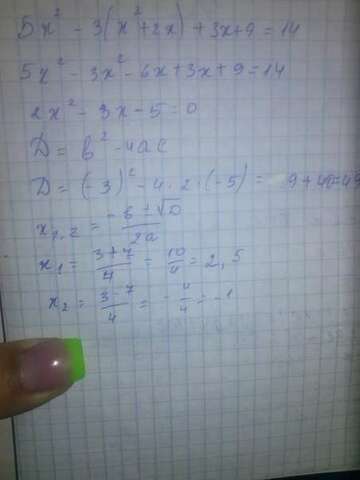 5x² - 3(x² + 2x) + 3x + 9 = 14
5x² - 3x² - 6x + 3x + 9 = 14
2x² - 3x - 5 = 0
D = b² - 4ac
D = (-3)² - 4 · 2 · (-5) = 9 + 40 = 49
x₁,₂ = (-b ± √D)/2a
x₁ = (3+7)/4 = 10/4 = 2,5
x₂ = (3-7)/4 = -4/4 = -1